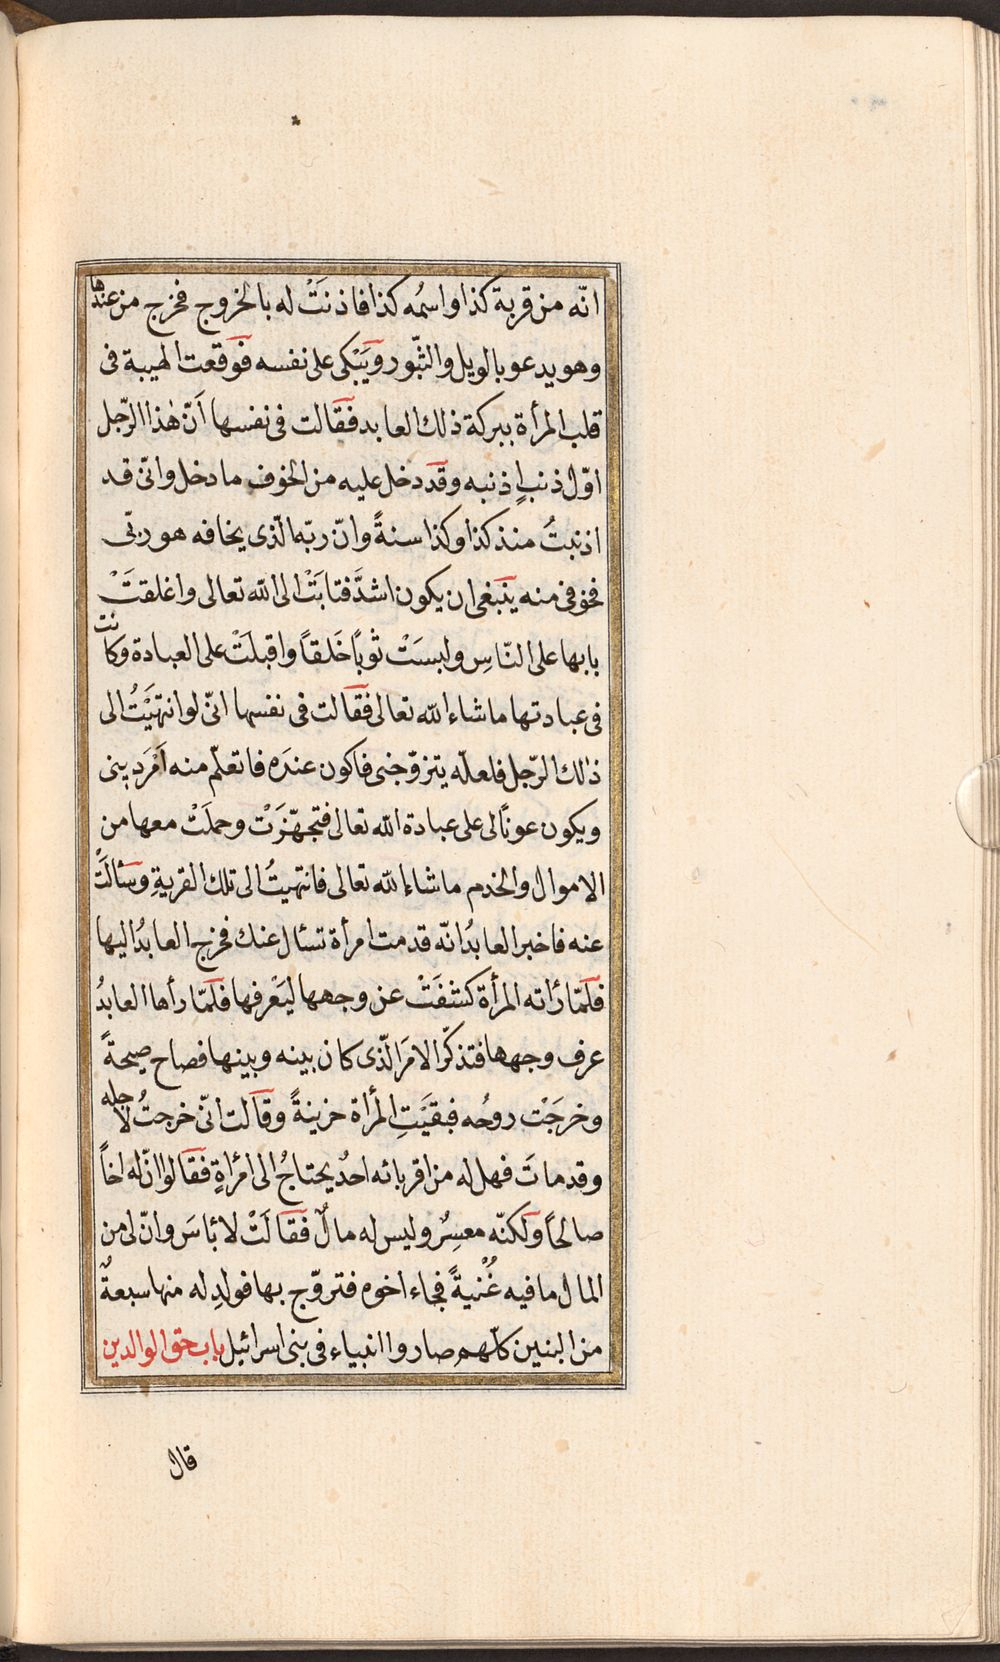 انّه من قرية كذا واسمُه كذا فاذنَتْ له بالخروج فخرج من عندها
وهو يدعو بالويل والثّبور ويَبْكى على نفسه فوقعت الهيبة فى
قلب المرأة ببركة ذلك العابد فقالت فى نفسها اَنّ هٰذا الرّجل
اوّل ذنبٍ اذنبه وقد دخل عليه من الخوف ما دخل وانّى قد
اذنبتُ منذ كذا وكذا سنةً وانّ ربّه الّذى يخافه هو ربّى
فخوفى منه ينبغى ان يكون اشدَّ فتابَتْ الى اللّه تعالى واغلقتَْ
بابها على النّاسِ ولبسَتْ ثوبًا خَلقاً واقبلَتْ على العبادة وكانت
فى عبادتها ماشاء اللّه تعالى فقالت فى نفسها انّى لو انتهَيْتُ الى
ذلك الرّجل فلعلّه يتزوّجنى فاكون عندَه فاتعلّم منه اَمْرَ دينى
ويكون عونًا لى على عبادة اللّه تعالى فتجهّزَتْ وحملَتْ معها من
الاموال والخدم ماشاء اللّه تعالى فانتهيتُ الى تلك القريةِ وسَئالَتْ
عنه فاخبر العابدُ انّه قدمت امرأة تسئال عنك فخرج العابدُ اليها
فلمّا رَاته المرأة كشفَتْ عن وجهها ليَعْرفها فلمّا رأها العابدُ
عرف وجهها فتذكّر الامرَ الّذى كان بينه وبينها فصاح صيحةً
وخرجَتْ روحُه فبقيَتِ المرأة حزينةً وقالت انّى خرجتُ لاجله
وقد ماتَ فهل له من اقربائه احدٌ يحتاجُ الى امرأةٍ فقالوا انّ له اخاً
صالحاً ولكنّه معسِرٌ وليس له مالٌ فقالَتْ لا باسَ وانّ لى من
المال ما فيه غُنْيةً فجاء اخوه فتزوّج بها فولدِ له منها سبعةٌ
من البنين كلّهم صاروا انبياء فى بنى اسرائيل باب حق الوالدين
قال